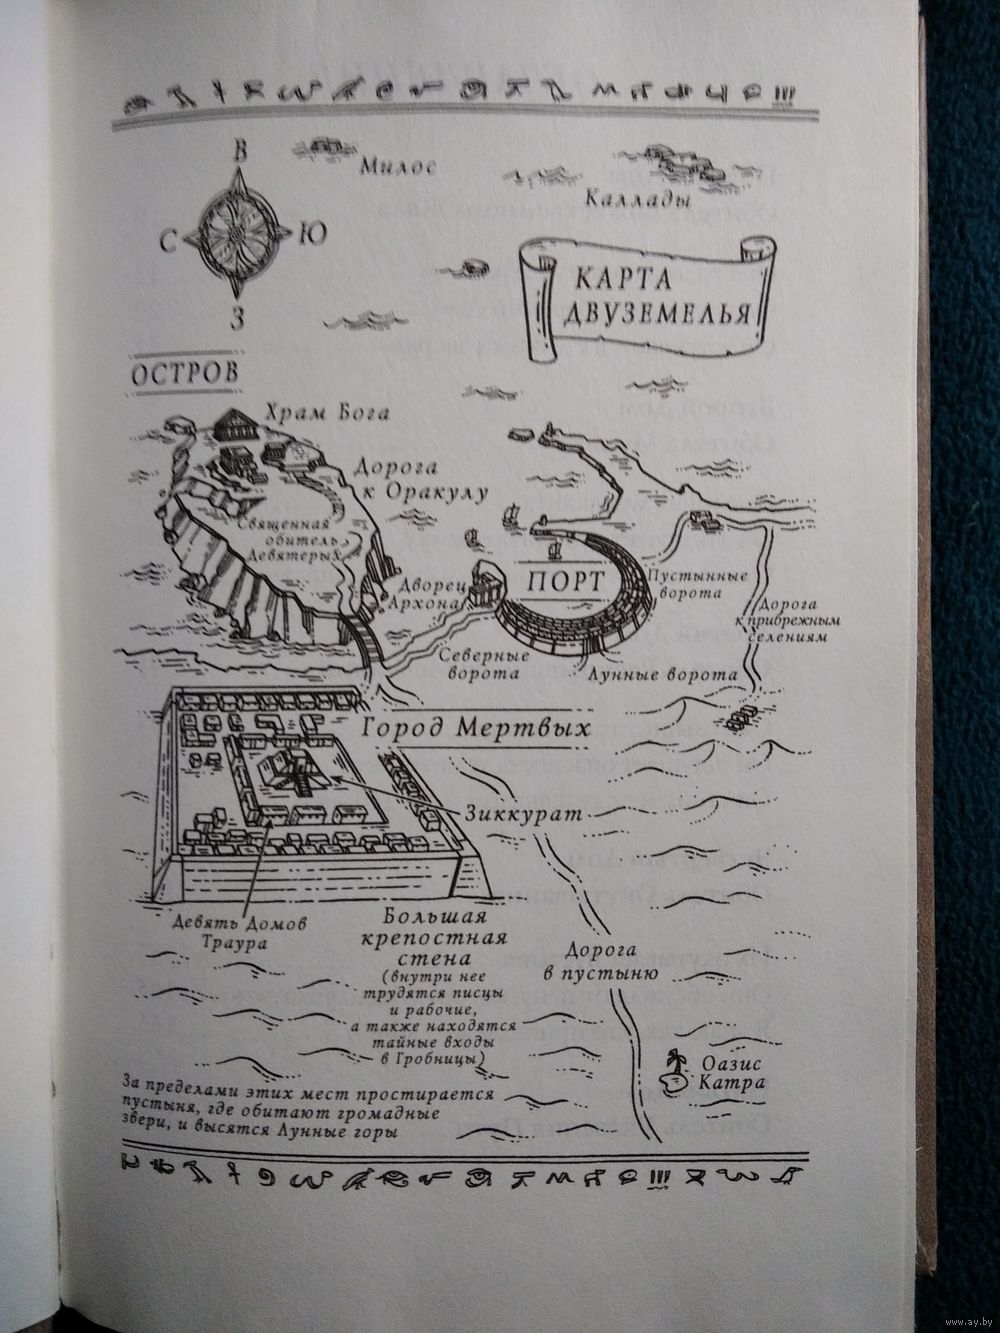 В
С
Ю
З
Милос
Каллады
КАРТА
ДВУЗЕМЕЛЬЯ
ОСТРОВ
Храм Бога
Дорога
к Оракулу
Священная
обитель
Девятерых
Дворец
Архона
ПОРТ
Пустынные
ворота
Дорога
к прибрежным
селениям
Северные
ворота
Лунные ворота
Город Мертвых
Зиккурат
Девять Домов
Траура
Большая
крепостная
стена
(внутри нее
трудятся писцы
и рабочие,
а также находятся
тайные входы
в Гробницы)
Дорога
в пустыню
Оазис
Катра
За пределами этих мест простирается
пустыня, где обитают громадные
звери, и высятся Лунные горы
www.ay.by